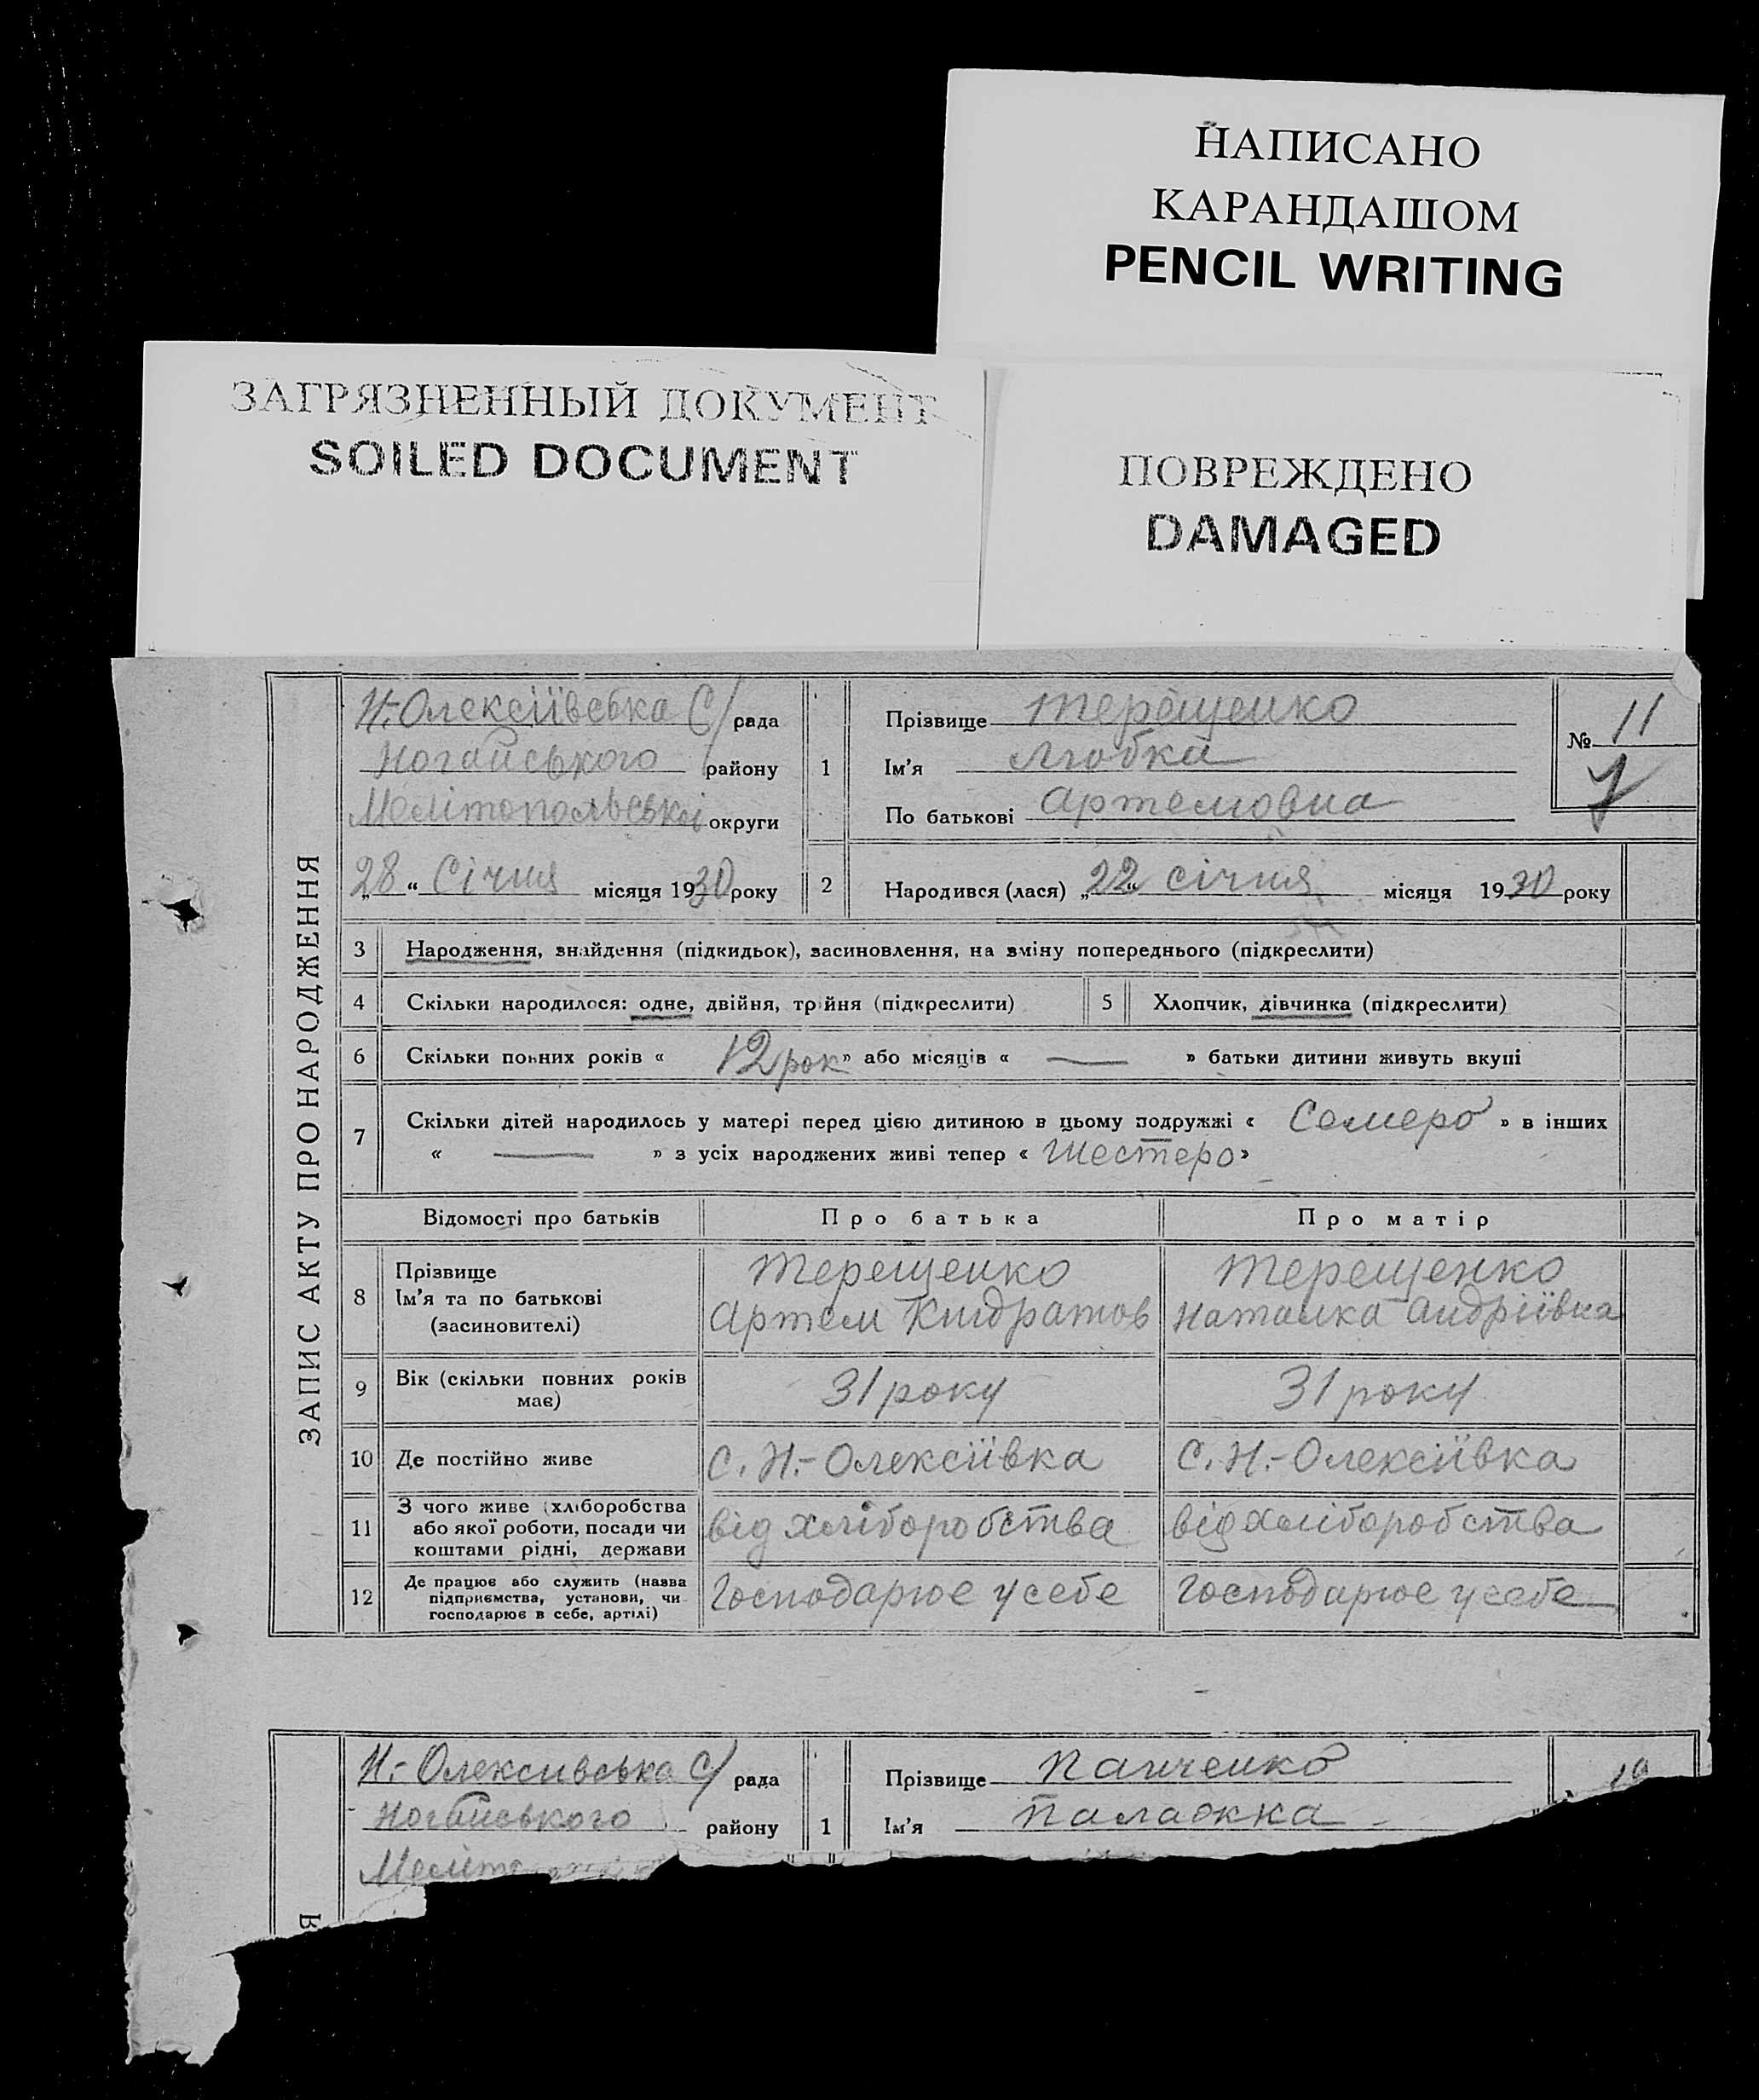 НАПИСАНО
КАРАНДАШОМ
PENCIL WRITING
ЗАГРЯЗНЕННЫЙ ДОКУМЕНТ
SOILED DOCUMENT
ПОВРЕЖДЕНО
DAMAGED
ЗАПИС АКТУ ПРО НАРОДЖЕННЯ
Н.-Олексіївська С/ рада
Ногайського району
Мелітопольської округи
„28“ Січня місяця 1930 року
1 Прізвище Терещенко
Ім'я Любка
По батькові Артемовна
№ 11
2 Народився (лася) „22“ січня місяця 1930 року
3 Народження, знайдення (підкидьок), засиновлення, на зміну попереднього (підкреслити)
4 Скільки народилося: одне, двійня, трійня (підкреслити) 5 Хлопчик, дівчинка (підкреслити)
6 Скільки повних років « 12 рок » або місяців « — » батьки дитини живуть вкупі
7 Скільки дітей народилось у матері перед цією дитиною в цьому подружжі « Семеро » в інших
« — » з усіх народжених живі тепер « Шестеро »
Відомості про батьків Про батька Про матір
8 Прізвище
Ім'я та по батькові
(засиновителі)
Терещенко
Артем Киндратов
Терещенко
Наталка Андріївна
9 Вік (скільки повних років
має)
31 року 31 року
10 Де постійно живе с. Н.-Олексіївка с. Н.-Олексіївка
11 З чого живе (хліборобства
або якої роботи, посади чи
коштами рідні, держави
від хліборобства від хліборобства
12 Де працює або служить (назва
підприємства, установи, чи
господарює в себе, артілі)
Господарює у себе Господарює у себе
Н.-Олексивська С/ рада
Ногайського району
1 Прізвище Панченко
Ім'я Палажка
Я